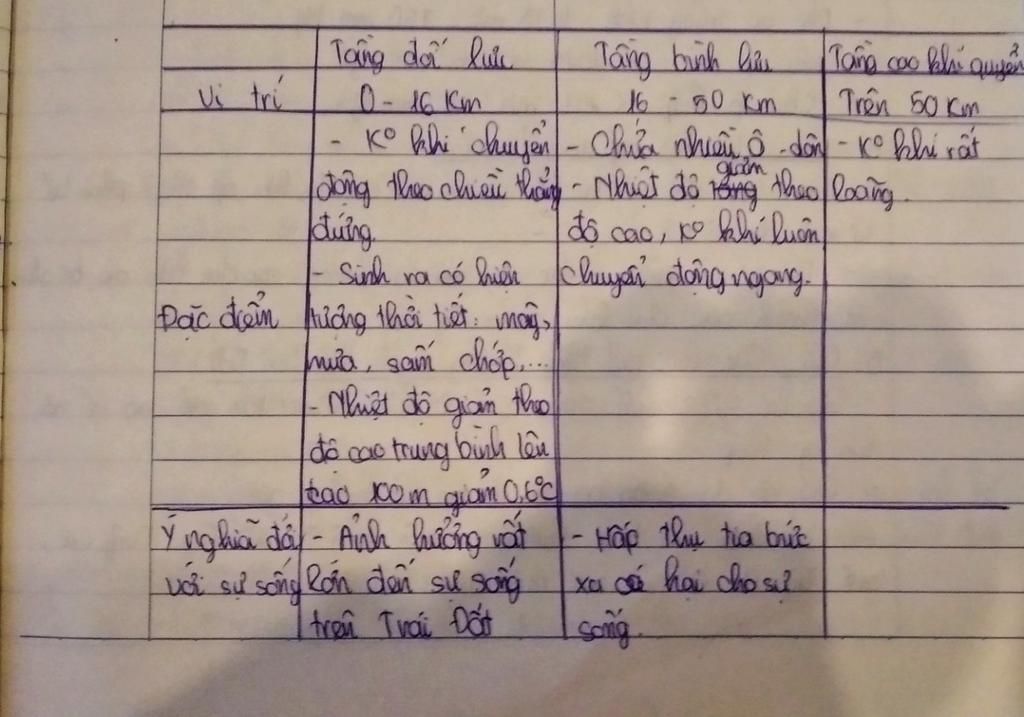 Tầng đối lưu Tầng bình lưu Tầng cao khí quyển
Vị trí 0 - 16 Km 16 - 50 Km Trên 50 Km
- Kº khí chuyển - Chứa nhiều Ô-dôn - Kº khí rất
giảm
động theo chiều thẳng - Nhiệt độ tăng theo loãng.
đứng. độ cao, Kº khí luôn
- Sinh ra có hiện chuyển động ngang.
Đặc điểm tượng thời tiết: mây,
mưa, sấm chớp,...
- Nhiệt độ giảm theo
độ cao trung bình lên
cao 100m giảm 0,6ºC
Ý nghĩa đối - Ảnh hưởng rất - Hấp thụ tia bức
với sự sống lớn đến sự sống xạ có hại cho sự
trên Trái Đất sống.